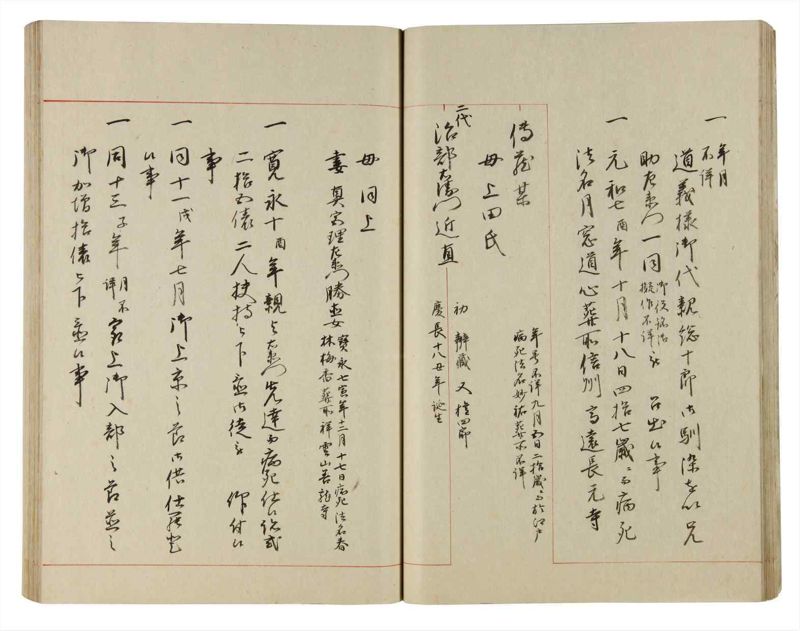 一 年月不詳
道義様御代親総十郎御馴染を以兄
助左衛門一同 御役職治 擬作不詳 被 召出候事
一 元和七酉年十月十八日四拾七歳ニ而病死
法名月窓道心葬所信州高遠長元寺
傳蔵某
母上田氏
年号不詳九月五日二拾歳ニ而於江戸
病死法名妙祐葬所不詳
二代
治部左衛門近直
初 辨蔵 又 権四郎
慶長十八丑年誕生
母同上
妻真宮理左衛門勝
寛永七寅年十二月十七日病死法名春
林梅香葬所祥雲山善龍寺
一 寛永十酉年親 左衛門先達而病死仕候
二拾五俵二人扶持被下置御徒被 仰付候
事
一 同十一戌年七月御上京之節御供仕罷登
候事
一 同十三子年 月不詳 最上御入部之節並之
御加増拾俵被下置候事